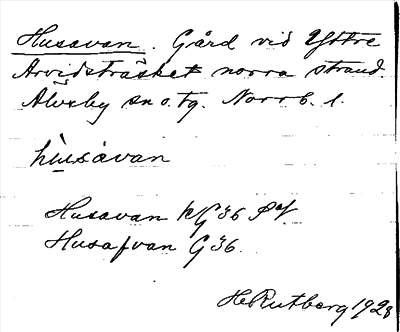 Husavan. Gård vid Yttre
Arvidsträsket norra strand.
Älvsby sn o. tg. Norrb. l.
husavan
Husavan KG 36
Husafvan G 36.
H. Rutberg 1928